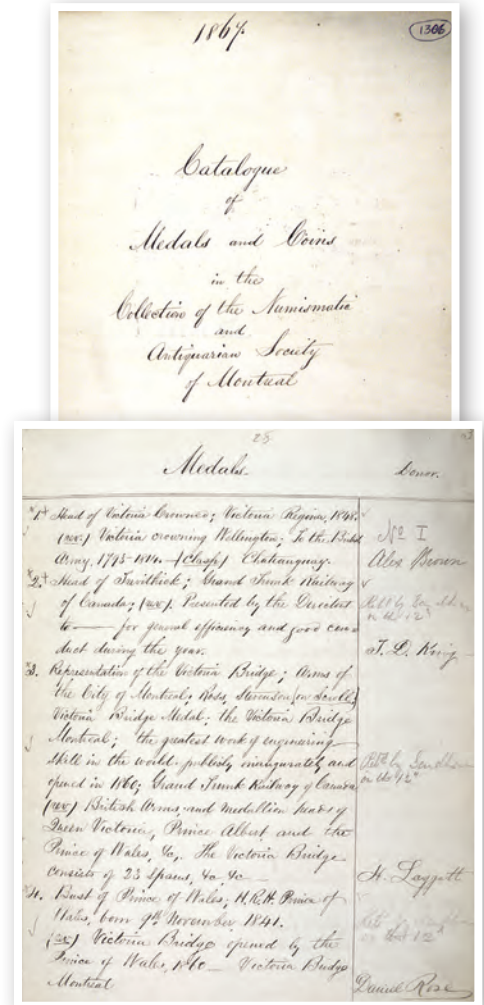 1867.
1306
Catalogue
of
Medals and Coins
in the
Collection of the Numismatic
and
Antiquarian Society
of Montreal
25
Medals.
Donor.
1. Head of Victoria Crowned; Victoria Regina, 1848.
(rev.) Victoria crowning Wellington; To the British
Army, 1793-1814. (Clasp) Chateauguay.
No I
Alex Brown
2. Head of Trevithick; Grand Trunk Railway
of Canada; (rev). Presented by the Directors
to — for general efficiency and good con
duct during the year.
on the 12
J. D. King
3. Representation of the Victoria Bridge; Arms of
the City of Montreal; Ross, Stevenson (on scroll)
Victoria Bridge Medal; the Victoria Bridge
Montreal; the greatest work of engineering
skill in the world. publicly inaugurated and
opened in 1860; Grand Trunk Railway of Canada
(rev.) British Arms, and medallion heads of
Queen Victoria, Prince Albert and the
Prince of Wales, &c., The Victoria Bridge
consists of 23 spans, &c &c
by Sandham
on the 12
H. Laggatt
4. Bust of Prince of Wales; H.R.H. Prince of
Wales, born 9th November 1841.
(rev.) Victoria Bridge opened by the
Prince of Wales, 1860 — Victoria Bridge
Montreal
Daniel Rose